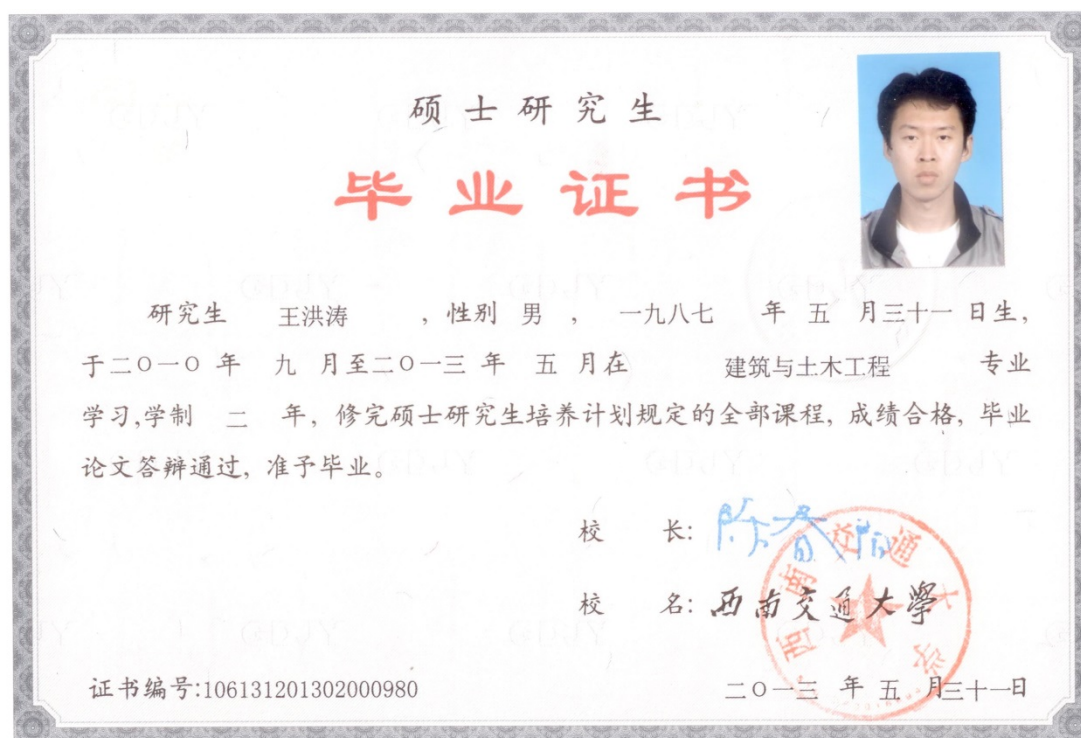 硕士研究生
毕业证书
研究生 王洪涛 ，性别 男 ， 一九八七 年 五 月三十一 日生，
于二〇一〇 年 九 月至二〇一三 年 五 月在 建筑与土木工程 专业
学习,学制 二 年，修完硕士研究生培养计划规定的全部课程，成绩合格，毕业
论文答辩通过，准予毕业。
校 长:
校 名: 西南交通大學
西南交通大学
证书编号:106131201302000980
二〇一三 年 五 月三十一日